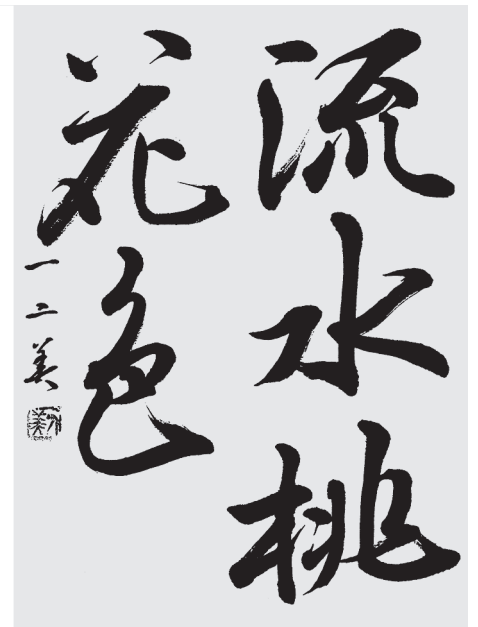 流水桃
花色
一二美